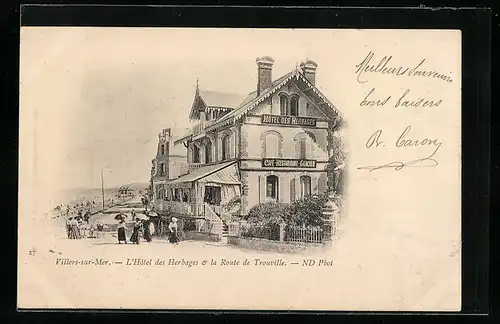 HÔTEL DES HERBAGES
CAFÉ-RESTAURANT-GLACIER
Meilleurs Souvenirs
bons baisers
R. Caron
Villers-sur-Mer. — L'Hôtel des Herbages & la Route de Trouville. — ND Phot